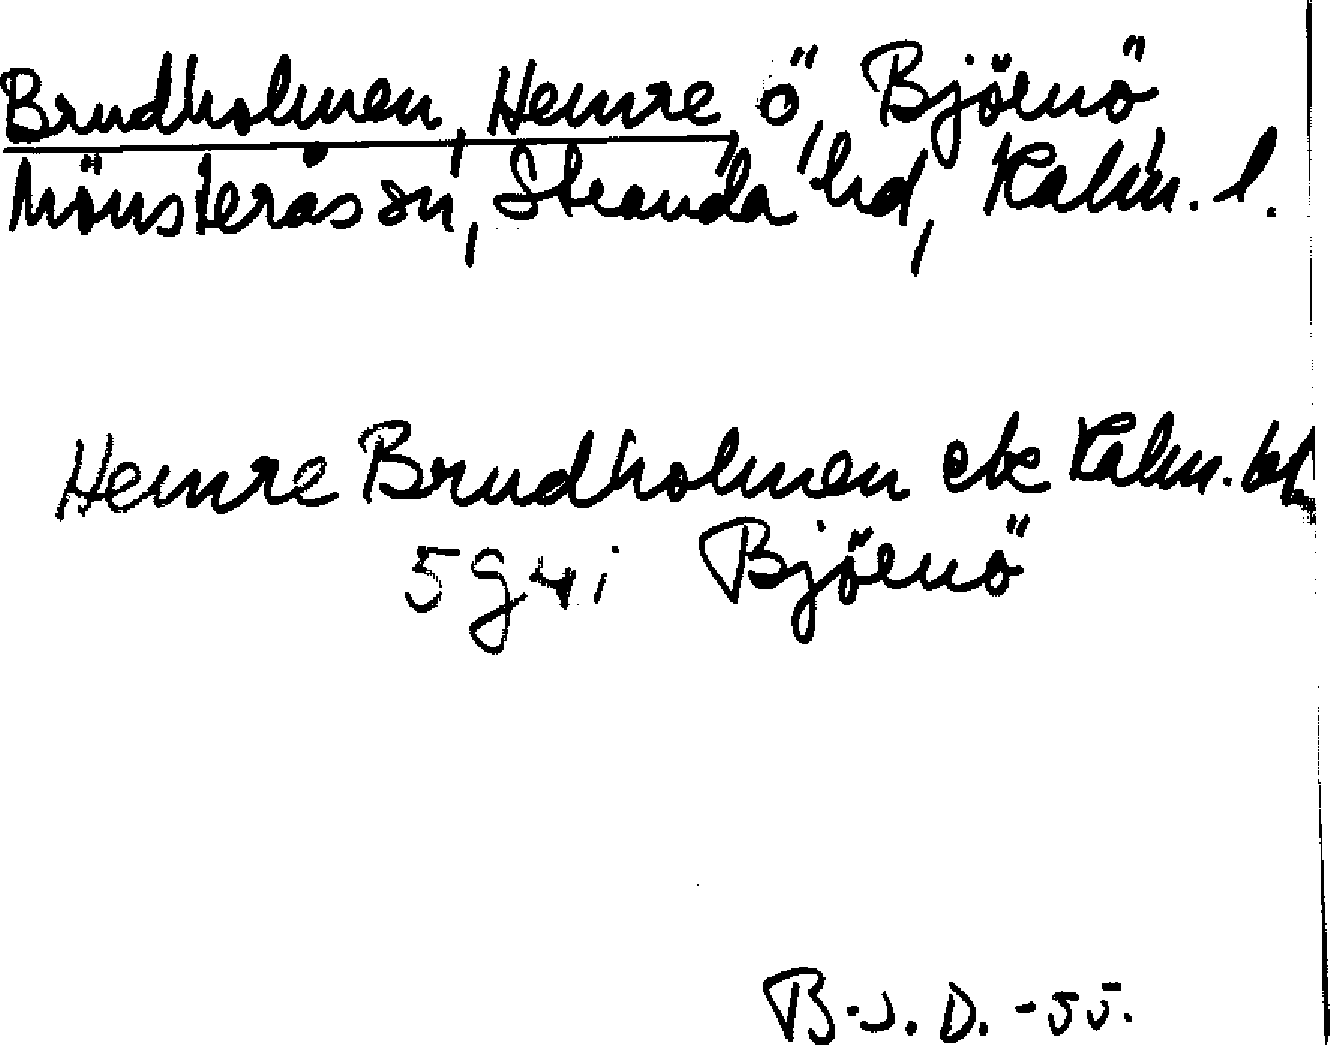 Brudholmen, Hemre, ö, Björnö
Mönsterås sn, Stranda hd, Kalm. l.
Hemre Brudholmen ek Kalm. bl.
5 g 4 i Björnö
B.J.D. -55.